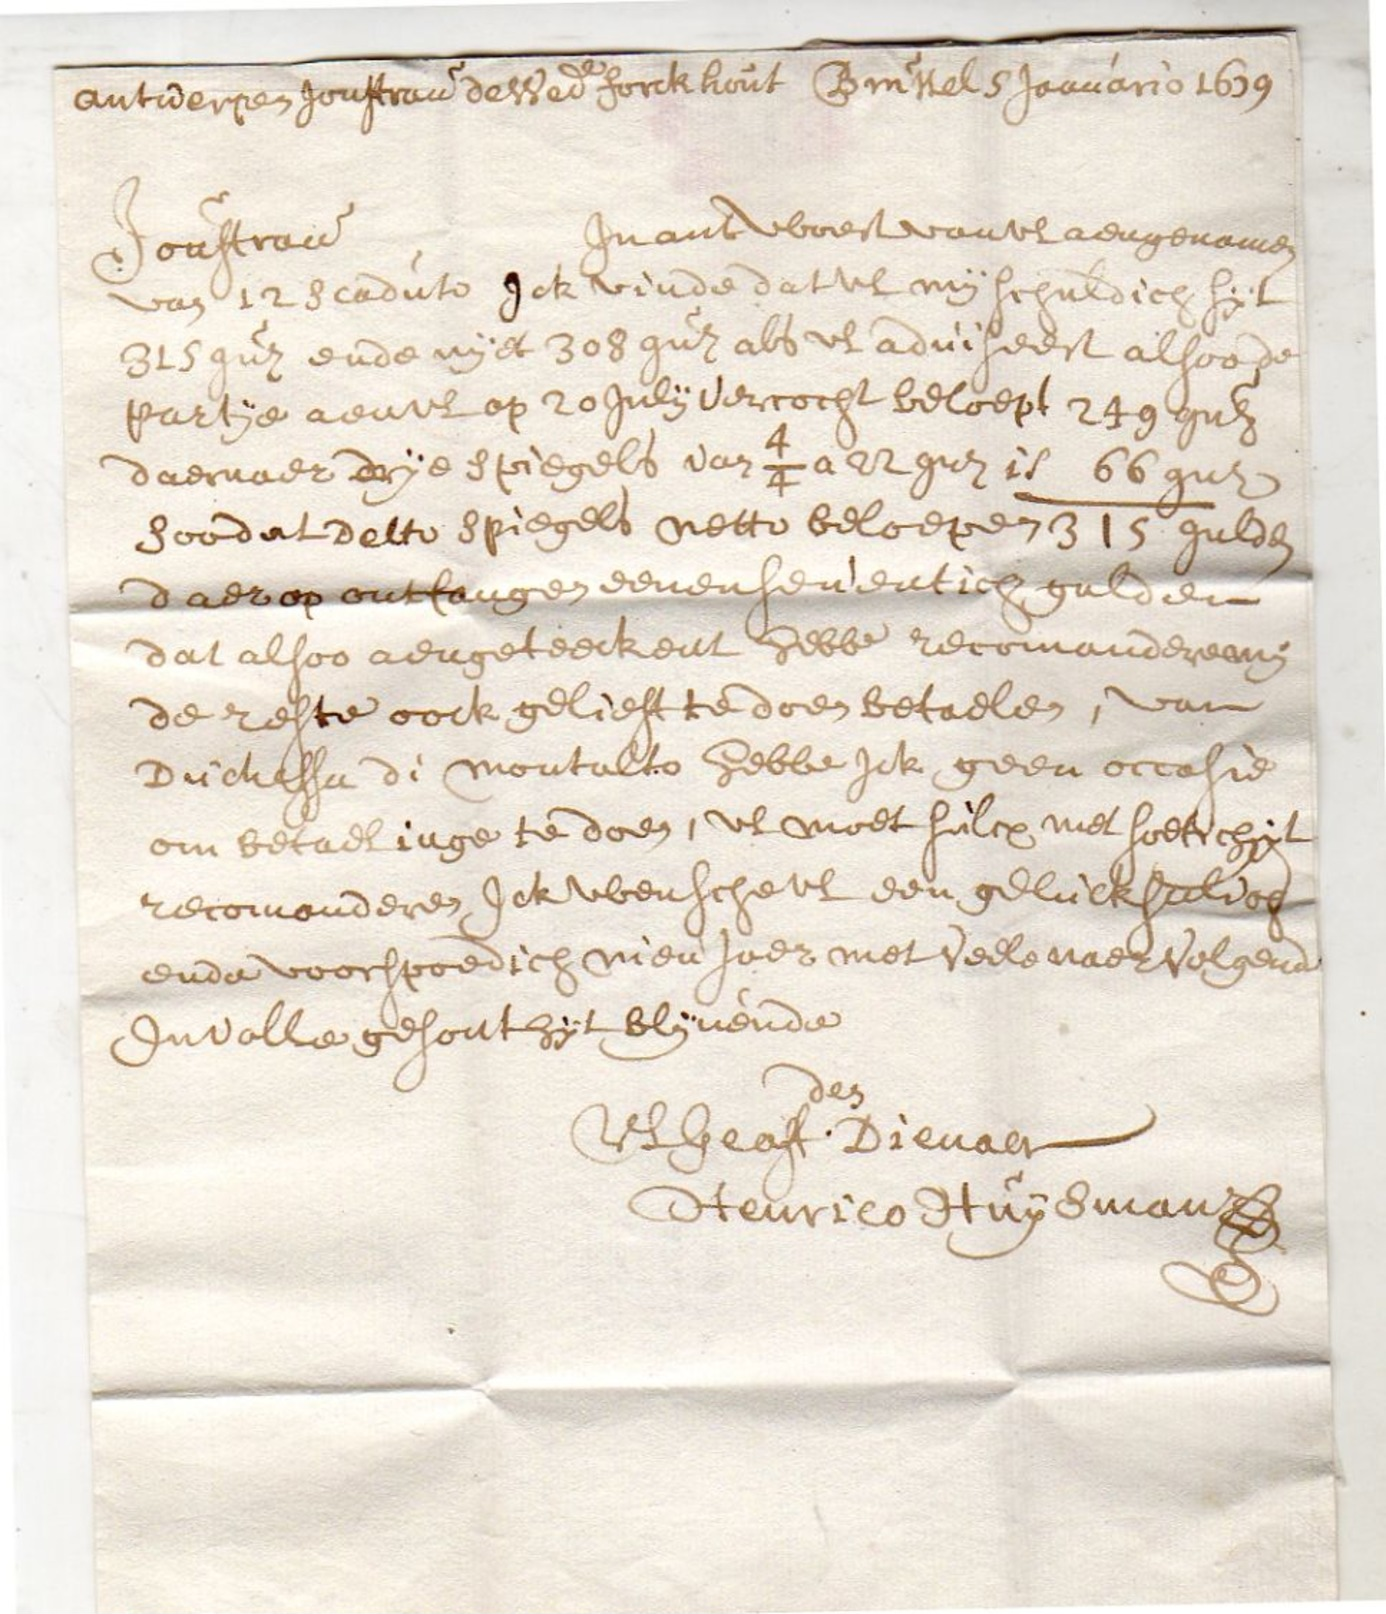 Antwerpen Jouffrauw de Wed.e Forckhout Brussel 5 Januario 1679
Jouffrauw In antwoort van vl aengenamen
van 12 scaduto Ick vinde dat vl mij schuldich sijt
315 guls ende nyet 308 guls als vl adviseert alsoo de
partije aen vl op 20 July vercocht beloept 249 guls
daernaer drije spiegels van 4/4 a 22 guls is 66 guls
soodat detto spiegels netto beloepen 315 gulden
daer op ontfangen eenensevendich gulden
dat alsoo aengeteeckent hebbe recomandere mij
de reste oock gelieft te doen betaelen, van
Duchessa di Montalto hebbe Ick geen occasie
om betaelinge te doen, vl moet sulcx met
recomanderen Ick wensche vl een geluckhalich
ende voorspoedich nieu Jaer met veele naervolgende
In volle gesontheyt blijvende
den
Vl geaff. Dienaer
Henrico Huijsmans